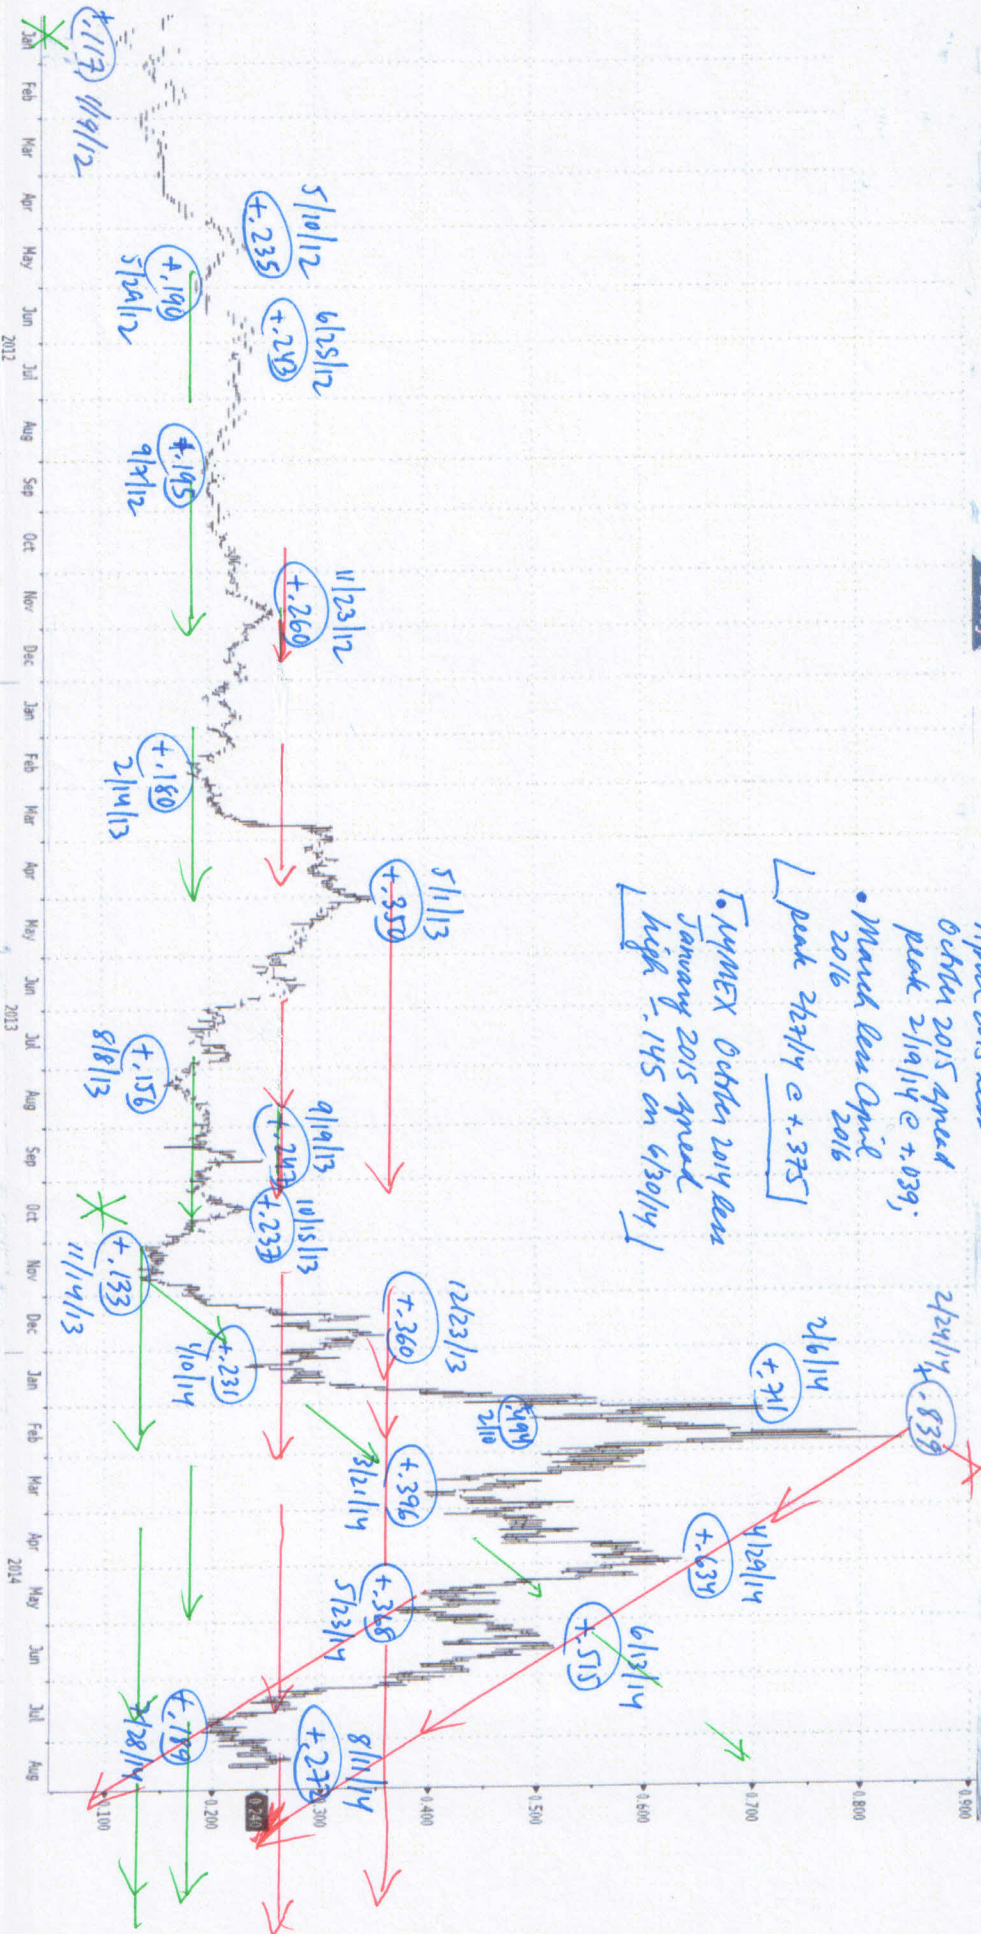 October 2015 spread
peak 2/19/14 @ +.039;
• March less April
2016 2016
peak 2/27/14 @ +.375
• NYMEX October 2014 less
January 2015 spread
high -.145 on 6/30/14
+.117
1/19/12
5/10/12
+.235
+.190
5/29/12
6/25/12
+.243
+.195
11/23/12
+.260
+.180
2/14/13
5/1/13
+.350
+.156
8/8/13
9/19/13
+.247
10/15/13
+.237
+.133
11/14/13
12/23/13
+.360
+.231
1/10/14
2/6/14
+.711
+.494
2/10
2/24/14
+.839
+.396
3/21/14
4/29/14
+.634
+.368
5/23/14
6/13/14
+.515
+.189
7/28/14
8/11/14
+.272
0.900
0.800
0.700
0.600
0.500
0.400
0.300
0.240
0.200
0.100
Jan Feb Mar Apr May Jun Jul Aug Sep Oct Nov Dec Jan Feb Mar Apr May Jun Jul Aug Sep Oct Nov Dec Jan Feb Mar Apr May Jun Jul Aug
2012 2013 2014